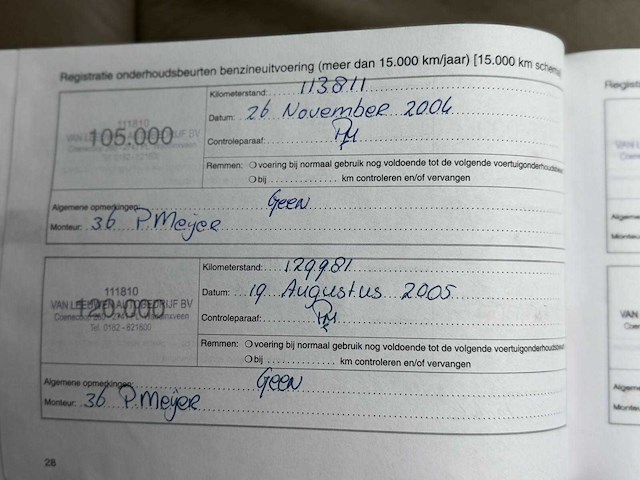 Registratie onderhoudsbeurten benzineuitvoering (meer dan 15.000 km/jaar) [15.000 km schema
111810
105.000
Kilometerstand: 113811
Datum: 26 November 2004
Controleparaaf: PM
Remmen: voering bij normaal gebruik nog voldoende tot de volgende
bij km controleren en/of vervangen
Algemene opmerkingen: Geen
Monteur: 36 P. Meijer
111810
VAN LEEUWEN AUTOBEDRIJF BV
120.000
Tel. 0182 - 621800
Kilometerstand: 129981
Datum: 19 Augustus 2005
Controleparaaf: PM
Remmen: voering bij normaal gebruik nog voldoende tot de volgende
bij km controleren en/of vervangen
Algemene opmerkingen: Geen
Monteur: 36 P. Meijer
28